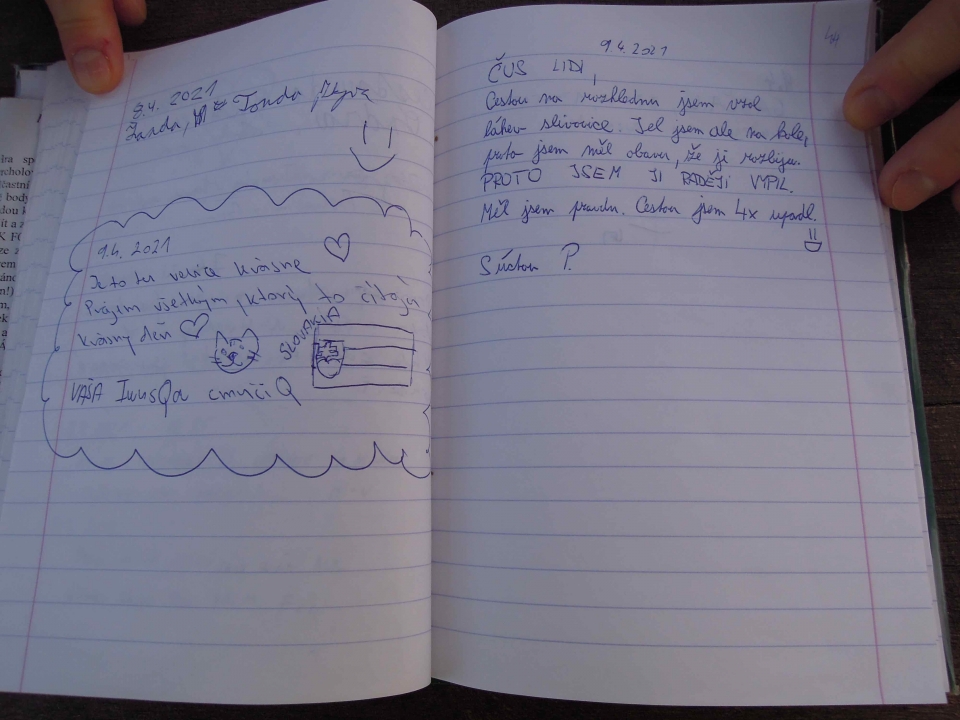 9.4. 2021
Žanda, Tonda
9.4. 2021
Je to tu velice krásne
Prájem všetkým, ktorý to čítajú
krásny deň
SLOVAKIA
VAŠA
9.4. 2021
ČUS LIDI,
Cestou na rozhlednu jsem vzal
láhev slivovice. Jel jsem ale na kole,
proto jsem měl obavu, že ji rozbiju.
PROTO JSEM JI RADĚJI VYPIL.
Měl jsem pravdu. Cestou jsem 4x upadl.
S úctou P.